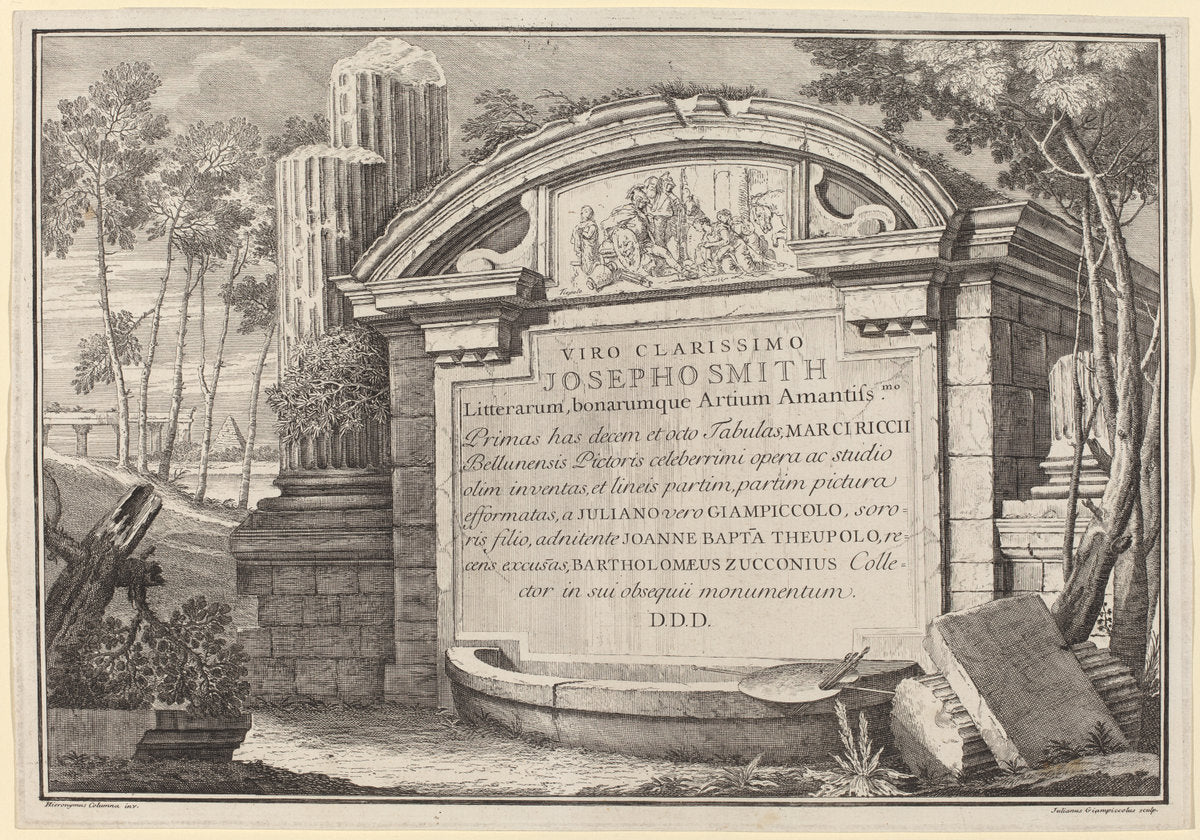 VIRO CLARISSIMO
JOSEPHO SMITH
Litterarum, bonarumque Artium Amantiſs.mo
Primas has decem et octo Tabulas, MARCI RICCII
Bellunensis Pictoris celeberrimi opera ac studio
olim inventas, et lineis partim, partim pictura
efformatas, a JULIANO vero GIAMPICCOLO, soro=
ris filio, adnitente JOANNE BAPT̃A THEUPOLO, re=
cens excus̃as, BARTHOLOMÆUS ZUCCONIUS Colle=
ctor in sui obsequii monumentum.
D.D.D.
Hieronymus Columna inv.
Julianus Giampiccolus sculp.